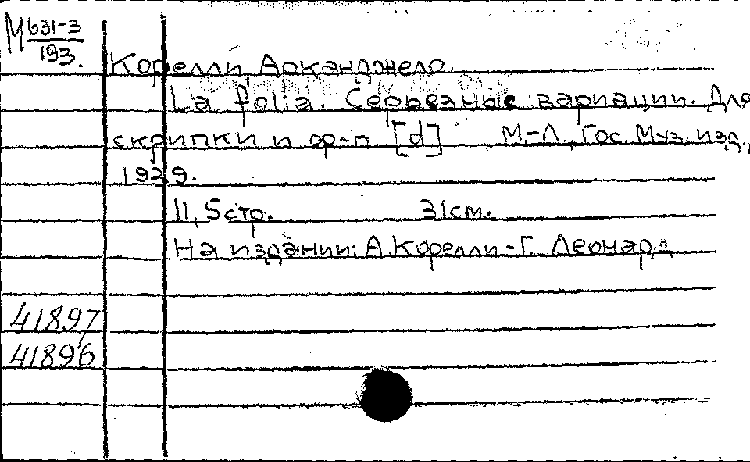 М 631-3
193.
Корелли, Арканджело.
La folia. Серьезные вариации. Для
скрипки и ф-п [d] М.-Л., Гос. Муз. изд,
1939.
11, 5 стр. 31 см.
На издании: А. Корелли - Г. Леонард
41897
41896